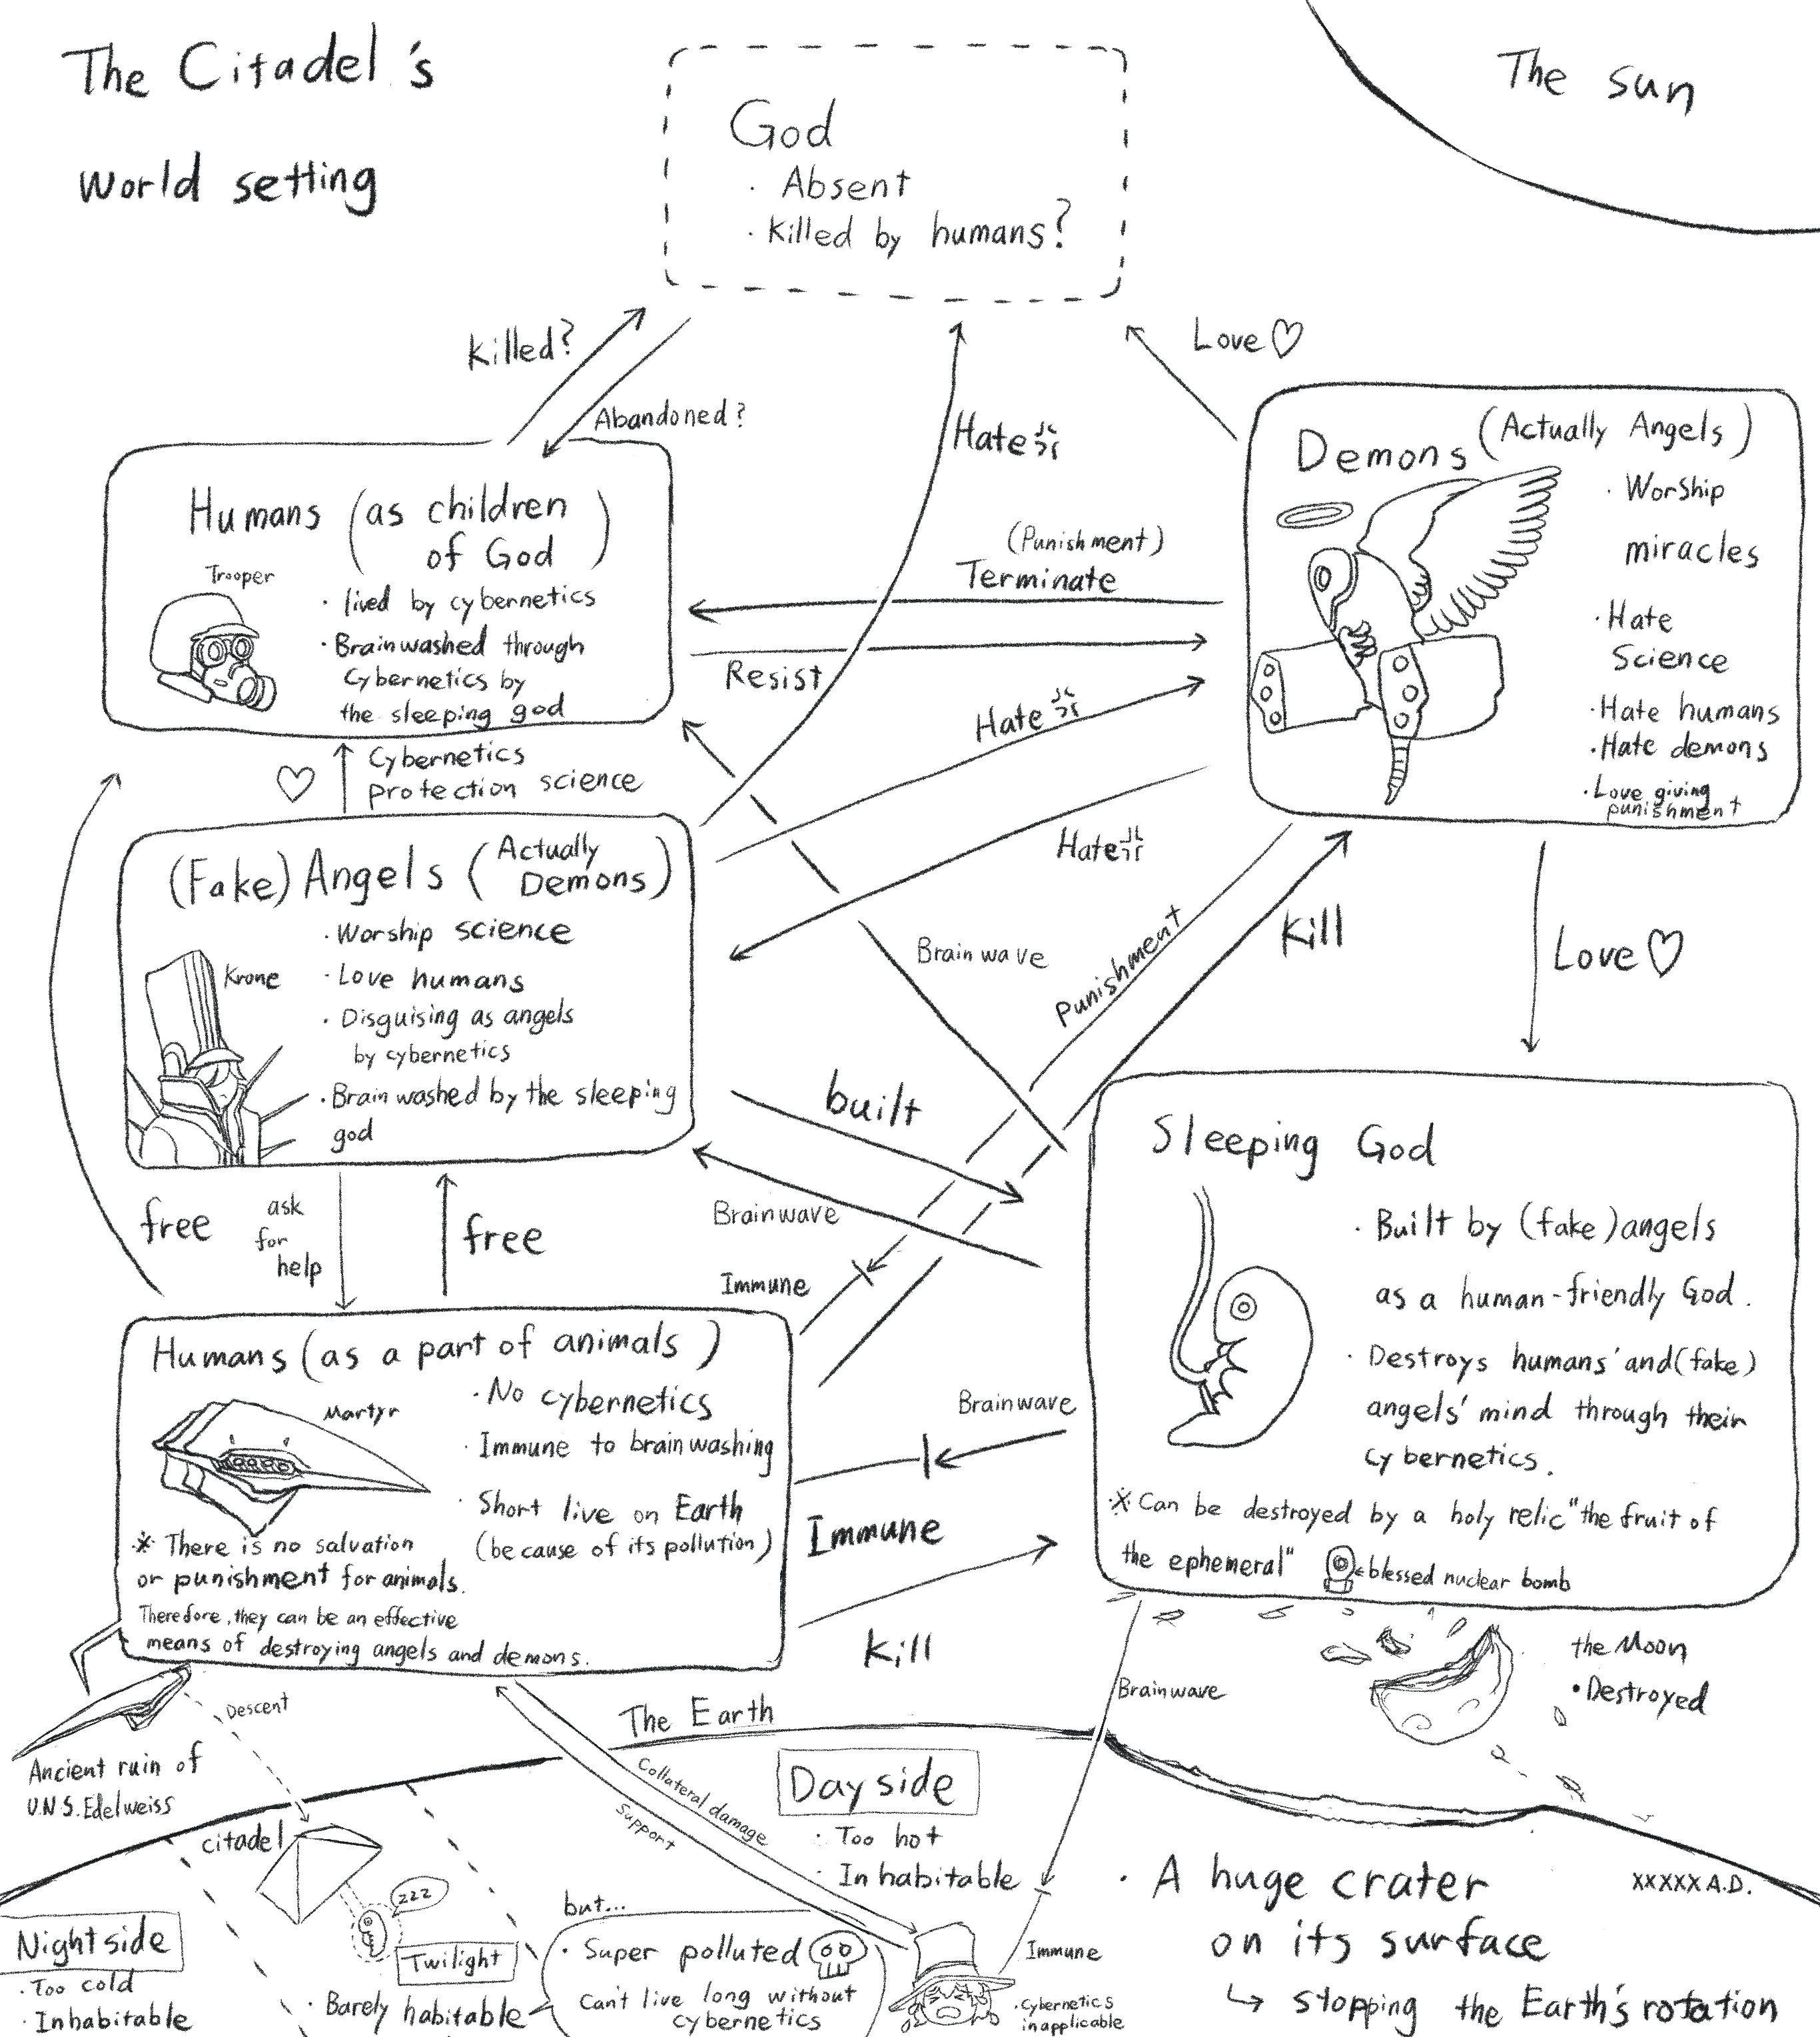 The Citadel's
world setting
The sun
God
· Absent
· Killed by humans?
Killed?
Abandoned?
Hate
Love♡
Humans (as children
of God)
Trooper
· lived by cybernetics
· Brainwashed through
Cybernetics by
the sleeping god
(Punishment)
Terminate
Resist
Hate
Hate
Demons (Actually Angels)
· Worship
miracles
· Hate
Science
· Hate humans
· Hate demons
· Love giving
punishment
♡
Cybernetics
protection science
(Fake) Angels (Actually
Demons)
· Worship science
Krone
· Love humans
· Disguising as angels
by cybernetics
· Brainwashed by the sleeping
god
Brain wave
Punishment
Kill
Love♡
built
Brainwave
Immune
free
ask
for
help
free
Sleeping God
· Built by (fake) angels
as a human-friendly God.
· Destroys humans' and (fake)
angels' mind through their
cybernetics.
※ Can be destroyed by a holy relic "the fruit of
the ephemeral"
←blessed nuclear bomb
Humans (as a part of animals)
Martyr
· No cybernetics
· Immune to brainwashing
· Short live on Earth
(because of its pollution)
※ There is no salvation
or punishment for animals.
Therefore, they can be an effective
means of destroying angels and demons.
Brainwave
Immune
Kill
Brainwave
the Moon
• Destroyed
Descent
Ancient ruin of
U.N.S. Edelweiss
The Earth
Collateral damage
Support
Day side
· Too hot
· Inhabitable
citadel
zzz
Night side
· Too cold
· Inhabitable
Twilight
· Barely habitable
but...
· Super polluted
Can't live long without
cybernetics
Immune
· Cybernetics
inapplicable
· A huge crater
on its surface
↳ stopping the Earth's rotation
XXXXX A.D.